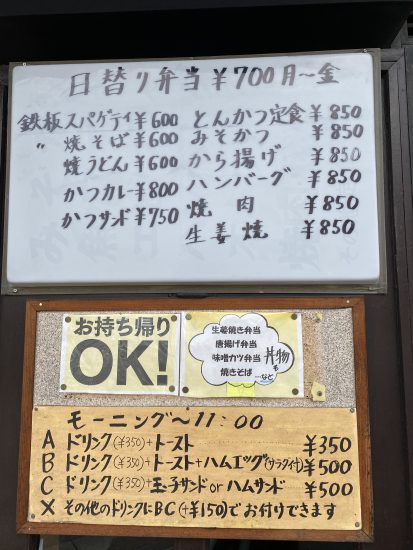 日替り弁当 ¥700 月〜金
鉄板スパゲティ ¥600
〃 焼そば ¥600
焼うどん ¥600
かつカレー ¥800
かつサンド ¥750
とんかつ定食 ¥850
みそかつ ¥850
から揚げ ¥850
ハンバーグ ¥850
焼肉 ¥850
生姜焼 ¥850
お持ち帰り
OK!
生姜焼き弁当
唐揚げ弁当
味噌カツ弁当
焼きそば
…など
丼物も
モーニング〜11:00
A ドリンク(¥350)+トースト ¥350
B ドリンク(¥350)+トースト+ハムエッグ(サラダ付) ¥500
C ドリンク(¥350)+玉子サンド or ハムサンド ¥500
× その他のドリンクにBC(+¥150)でお付けできます